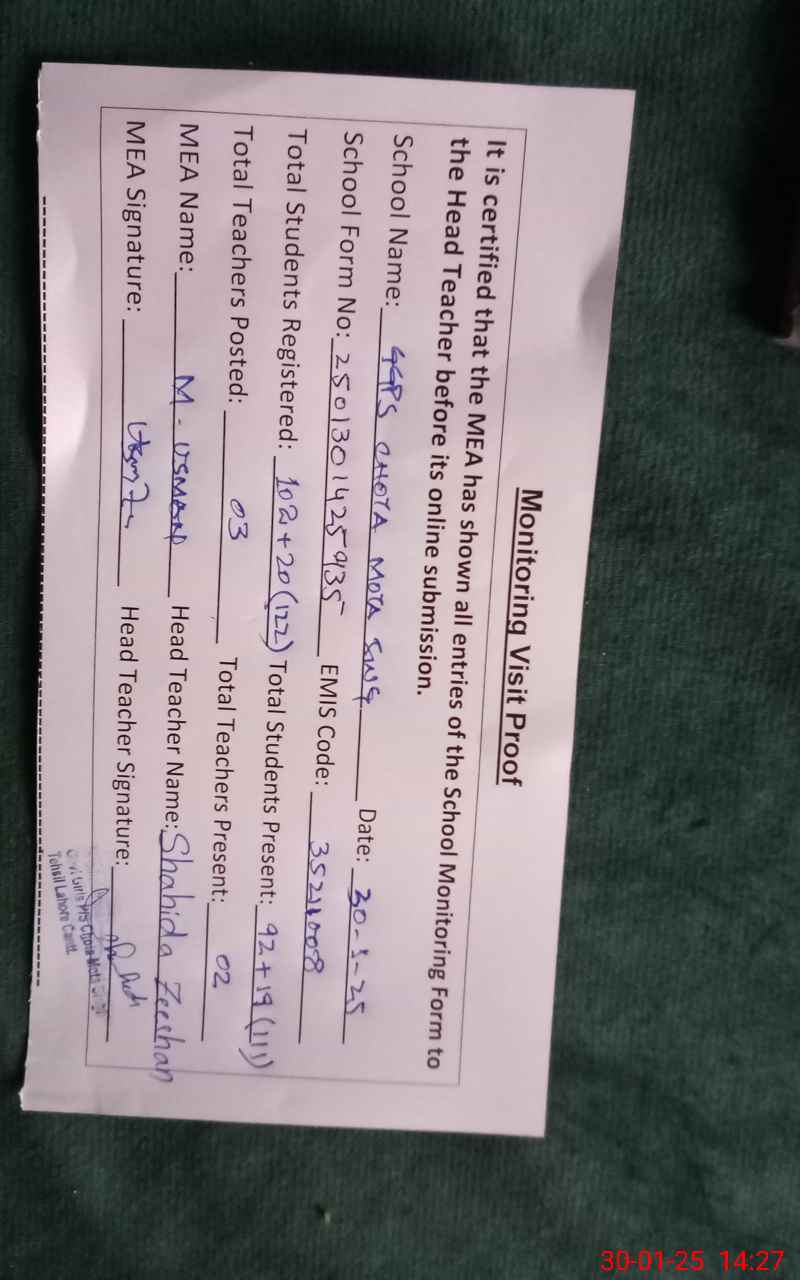 Monitoring Visit Proof
It is certified that the MEA has shown all entries of the School Monitoring Form to
the Head Teacher before its online submission.
School Name: GGPS CHOTA MOTA SING Date: 30-1-25
School Form No: 2501301425935 EMIS Code: 35211008
Total Students Registered: 102+20(122) Total Students Present: 92+19(111)
Total Teachers Posted: 03 Total Teachers Present: 02
MEA Name: M. USMAN Head Teacher Name: Shahida Zeeshan
MEA Signature: Head Teacher Signature:
Govt. Girls P/S Chota Mota Singh
Tehsil Lahore Cantt.
30-01-25 14:27